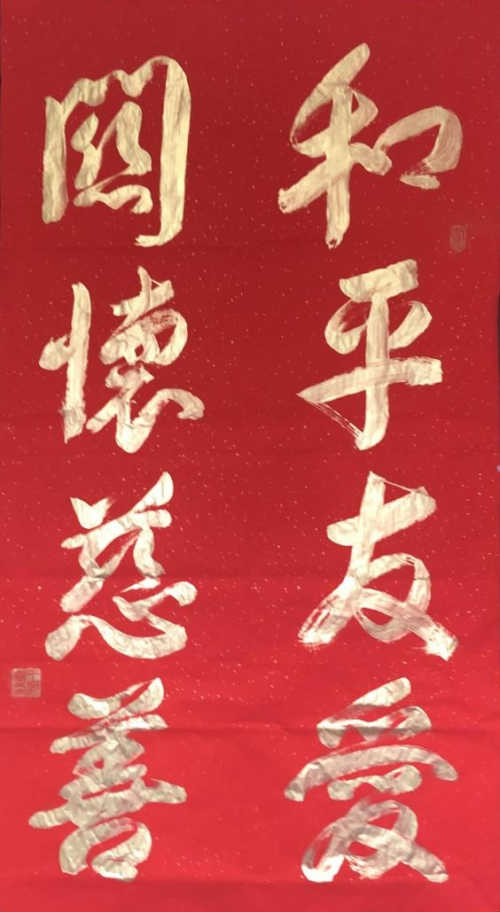 和平友爱
關懷慈善